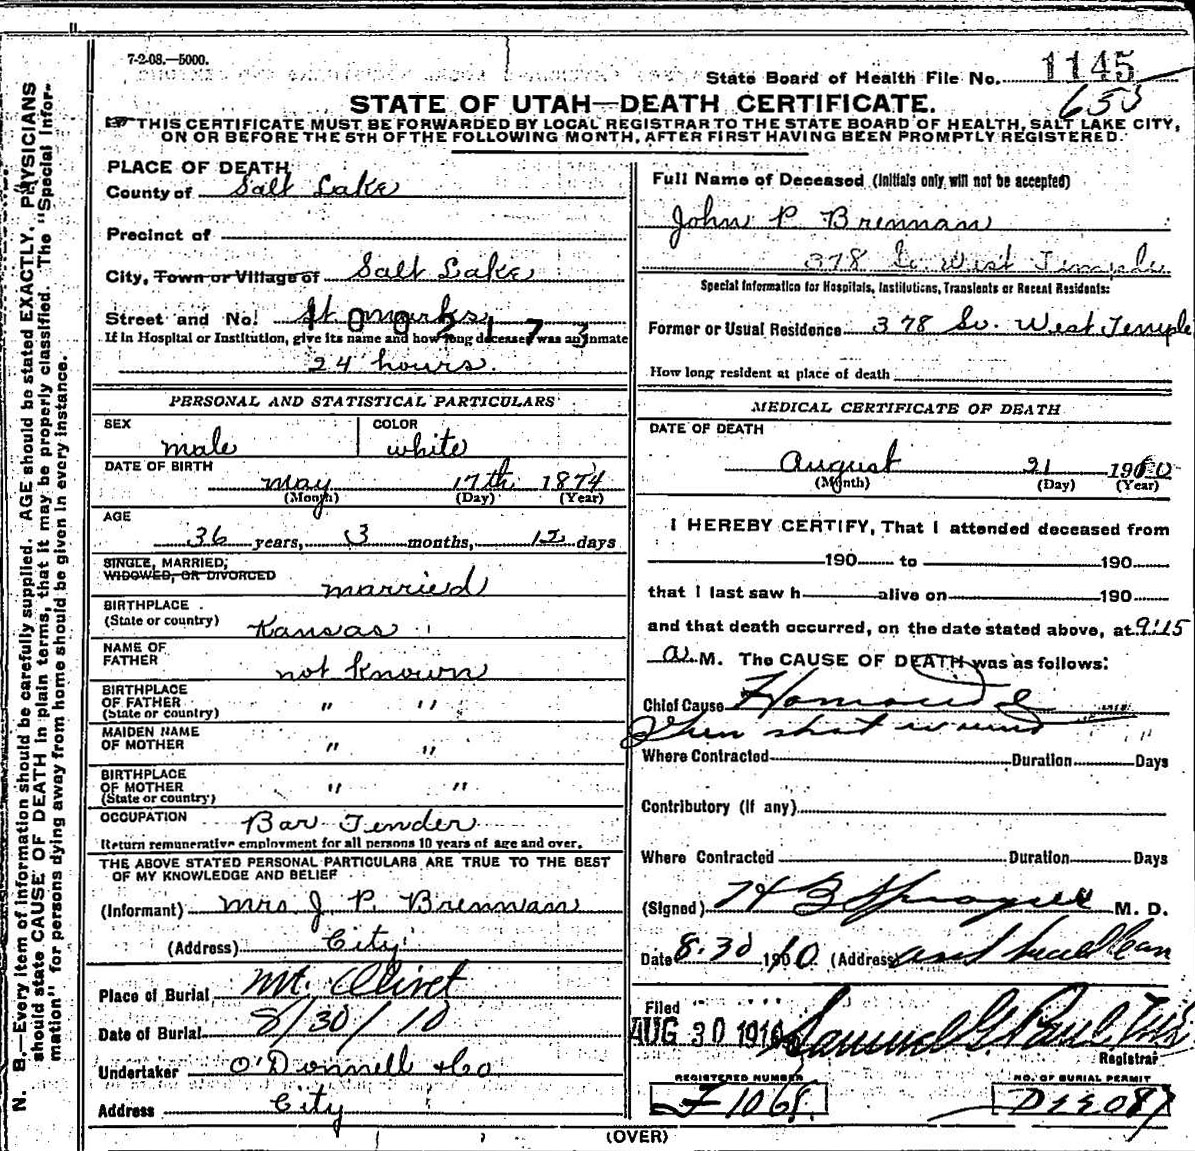 7-2-08.—5000.
State Board of Health File No. 1145
653
STATE OF UTAH—DEATH CERTIFICATE.
THIS CERTIFICATE MUST BE FORWARDED BY LOCAL REGISTRAR TO THE STATE BOARD OF HEALTH, SALT LAKE CITY,
ON OR BEFORE THE 5TH OF THE FOLLOWING MONTH, AFTER FIRST HAVING BEEN PROMPTLY REGISTERED.
N. B.—Every item of information should be carefully supplied. AGE should be stated EXACTLY. PHYSICIANS
should state CAUSE OF DEATH in plain terms, that it may be properly classified. The "Special Infor-
mation" for persons dying away from home should be given in every instance.
PLACE OF DEATH
County of Salt Lake
Precinct of
City, Town or Village of Salt Lake
Street and No. St marks
If in Hospital or Institution, give its name and how long deceased was an inmate
24 hours.
PERSONAL AND STATISTICAL PARTICULARS
SEX male COLOR white
DATE OF BIRTH
may 17th 1874
(Month) (Day) (Year)
AGE
36 years, 3 months, 12 days
SINGLE, MARRIED,
WIDOWED, OR DIVORCED married
BIRTHPLACE
(State or country) Kansas
NAME OF
FATHER not known
BIRTHPLACE
OF FATHER " "
(State or country)
MAIDEN NAME
OF MOTHER " "
BIRTHPLACE
OF MOTHER " "
(State or country)
OCCUPATION Bar Tender
Return remunerative employment for all persons 10 years of age and over.
THE ABOVE STATED PERSONAL PARTICULARS ARE TRUE TO THE BEST
OF MY KNOWLEDGE AND BELIEF
(Informant) Mrs J. P. Brennan
(Address) City
Place of Burial Mt. Olivet
Date of Burial 8/30/10
Undertaker O'Donnell & Co
Address City
Full Name of Deceased (Initials only will not be accepted)
John P Brennan
378 So West Temple
Special Information for Hospitals, Institutions, Transients or Recent Residents:
Former or Usual Residence 378 So. West Temple
How long resident at place of death
MEDICAL CERTIFICATE OF DEATH
DATE OF DEATH
August 190
(Month) (Day) (Year)
I HEREBY CERTIFY, That I attended deceased from
190 to 190
that I last saw h alive on 190
and that death occurred, on the date stated above, at 9:15
a M. The CAUSE OF DEATH was as follows:
Chief Cause
shot wound
Where Contracted Duration Days
Contributory (if any)
Where Contracted Duration Days
(Signed) H B Sprague M. D.
Date 8.30 10 (Address)
Filed
AUG 30 1910 Samuel G. Paul
Registrar
REGISTERED NUMBER
F 1068.
NO. OF BURIAL PERMIT
(OVER)